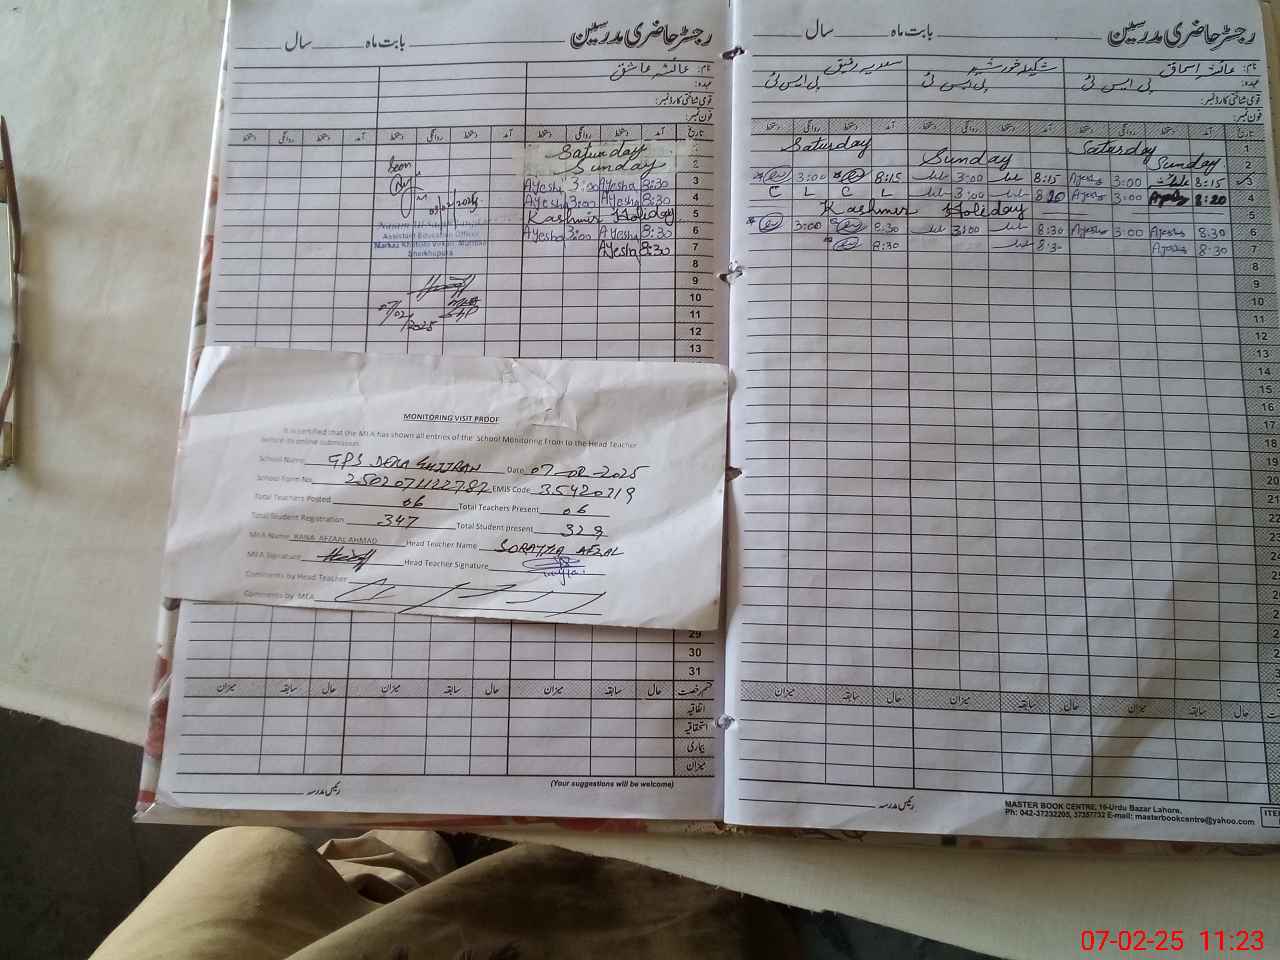 رجسٹر حاضری مدرسین بابت ماہ سال
نام: عائشہ عاشق
عہدہ:
قومی شناختی کارڈ نمبر:
فون نمبر:
تاریخ آمد دستخط روانگی دستخط آمد دستخط روانگی دستخط آمد دستخط روانگی دستخط
1 Saturday
2 Sunday
3 8:30 Ayesha 3:00 Ayesha
4 8:30 Ayesha 3:00 Ayesha
5 Kashmir Holiday
6 8:30 Ayesha 3:00 Ayesha
7 8:30 Ayesha
8
9
10
11
12
13
Seen
Assistant Education Officer
Sheikhupura
07/02/2025
MONITORING VISIT PROOF
It is certified that the MEA has shown all entries of the School Monitoring From to the Head Teacher
before its online submission.
School Name GPS DERA GUJJRAN Date 07-02-2025
School Form No 2502071122782 EMIS Code 35420219
Total Teachers Posted 06 Total Teachers Present 06
Total Student Registration 347 Total Student present 329
MEA Name RANA AFZAAL AHMAD Head Teacher Name SORAYYA AFZAL
MEA Signature Head Teacher Signature
Comments by Head Teacher
Comments by MEA
29
30
31
قسم رخصت حال سابقہ میزان حال سابقہ میزان حال سابقہ میزان
اتفاقیہ
استحقاقیہ
بیماری
میزان
رئیس مدرسہ
(Your suggestions will be welcome)
رجسٹر حاضری مدرسین بابت ماہ سال
نام: عائشہ اسحاق شکیلہ خورشید سعدیہ رفیق
عہدہ: پی ایس ٹی پی ایس ٹی پی ایس ٹی
قومی شناختی کارڈ نمبر:
فون نمبر:
تاریخ آمد دستخط روانگی دستخط آمد دستخط روانگی دستخط آمد دستخط روانگی دستخط
Saturday Saturday 1
Sunday Sunday 2
3:00 8:15 3:00 8:15 Ayesha 3:00 8:15 3
C L C L 3:00 8:20 Ayesha 3:00 Ayesha 8:20 4
Kashmir Holiday 5
3:00 8:30 3:00 8:30 Ayesha 3:00 Ayesha 8:30 6
8:30 8:3 Ayesha 8:30 7
8
9
10
11
12
13
14
15
16
17
18
19
20
21
حال سابقہ میزان حال سابقہ میزان حال سابقہ میزان
رئیس مدرسہ
MASTER BOOK CENTRE, 16-Urdu Bazar Lahore.
Ph: 042-37232205, 37357732 E-mail: masterbookcentre@yahoo.com
ITE
07-02-25 11:23